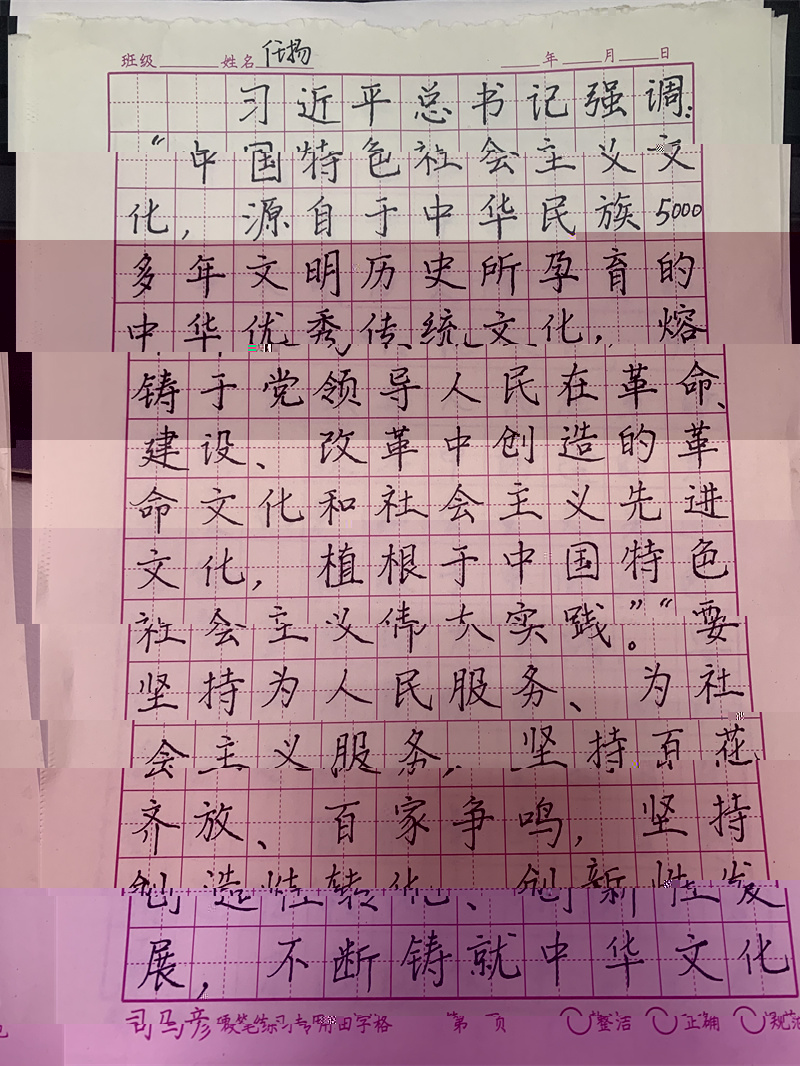 班级 姓名 任扬 年 月 日
习近平总书记强调:
“中国特色社会主义文
化,源自于中华民族5000
多年文明历史所孕育的
中华优秀传统文化,熔
铸于党领导人民在革命、
建设、改革中创造的革
命文化和社会主义先进
文化,植根于中国特色
社会主义伟大实践。”“要
坚持为人民服务、为社
会主义服务,坚持百花
齐放、百家争鸣,坚持
创造性转化、创新性发
展,不断铸就中华文化
司马彦硬笔练习专用田字格 第 页 整洁 正确 规范